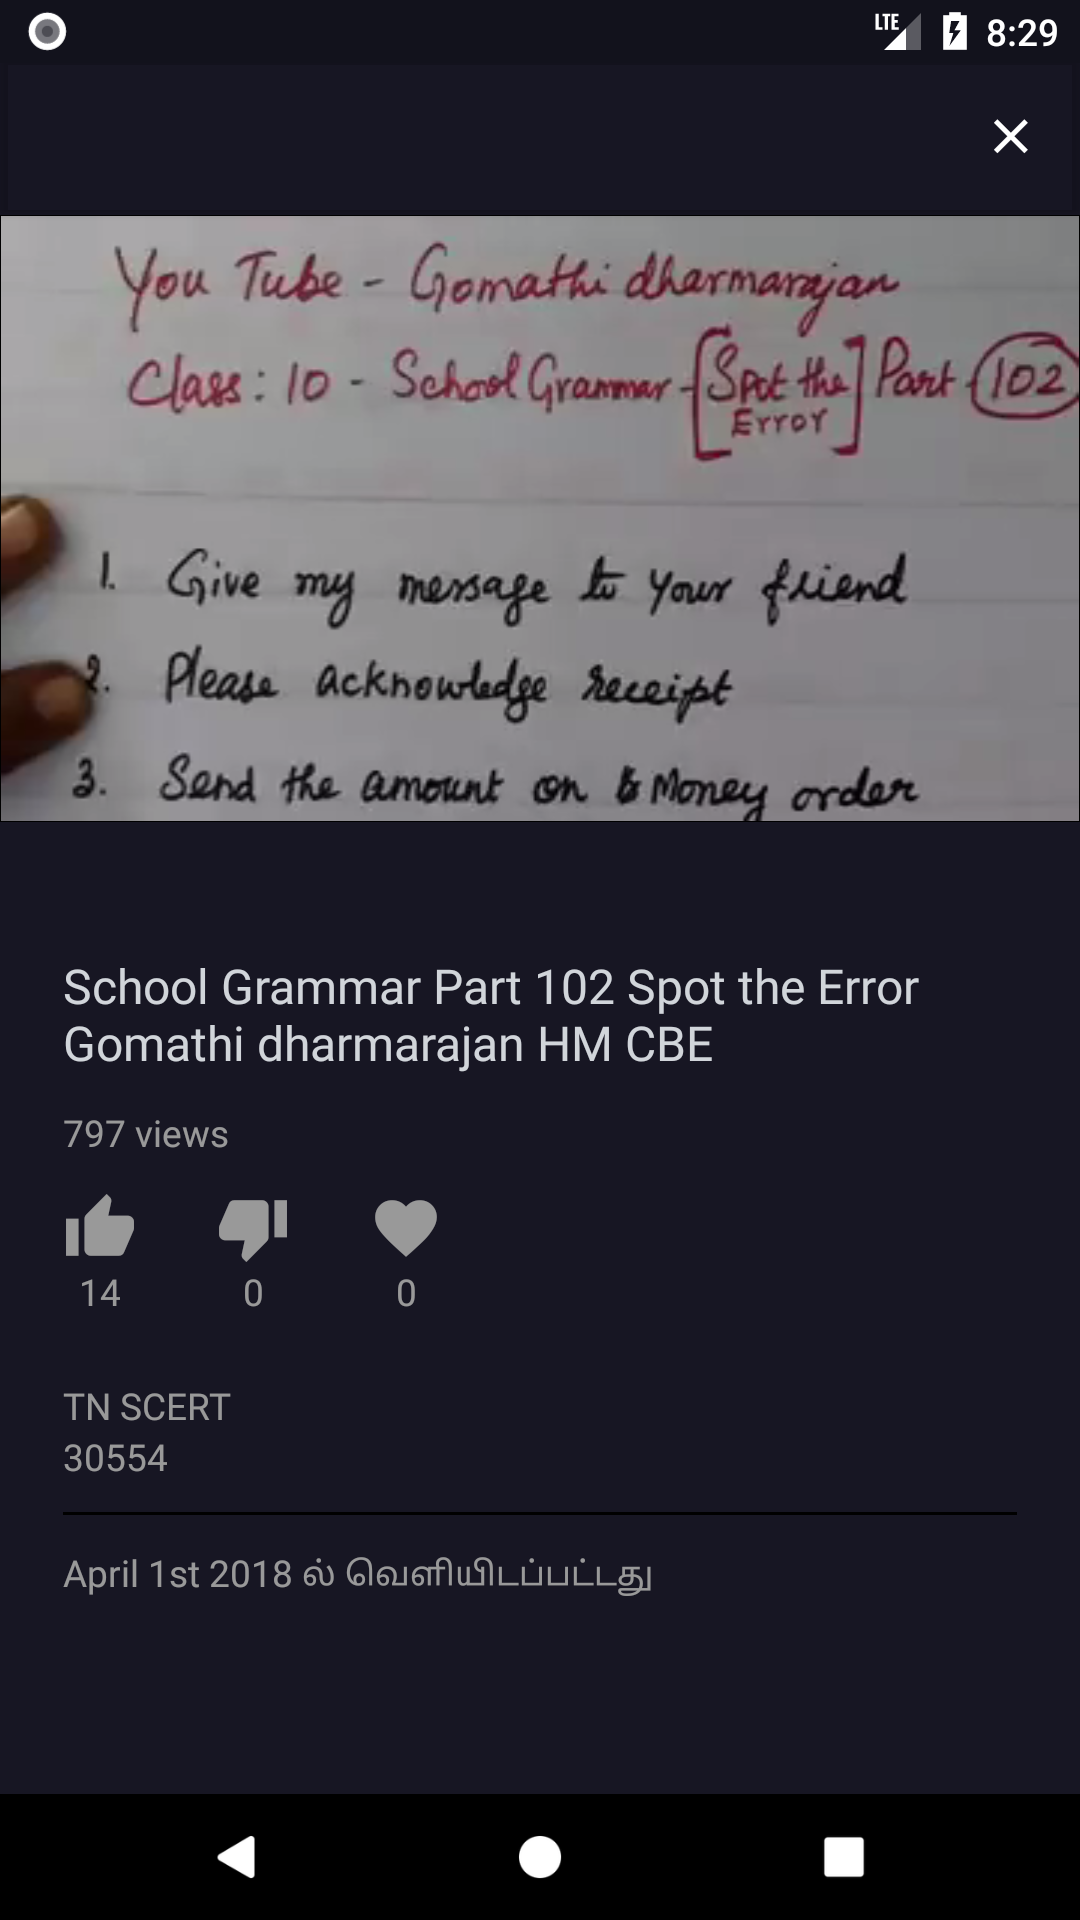 LTE 8:29
You Tube - Gomathi dharmarajan
Class: 10 - School Grammar - [Spot the Error] Part - 102
1. Give my message to your friend
2. Please acknowledge receipt
3. Send the amount on Money order
School Grammar Part 102 Spot the Error
Gomathi dharmarajan HM CBE
797 views
14 0 0
TN SCERT
30554
April 1st 2018 ல் வெளியிடப்பட்டது